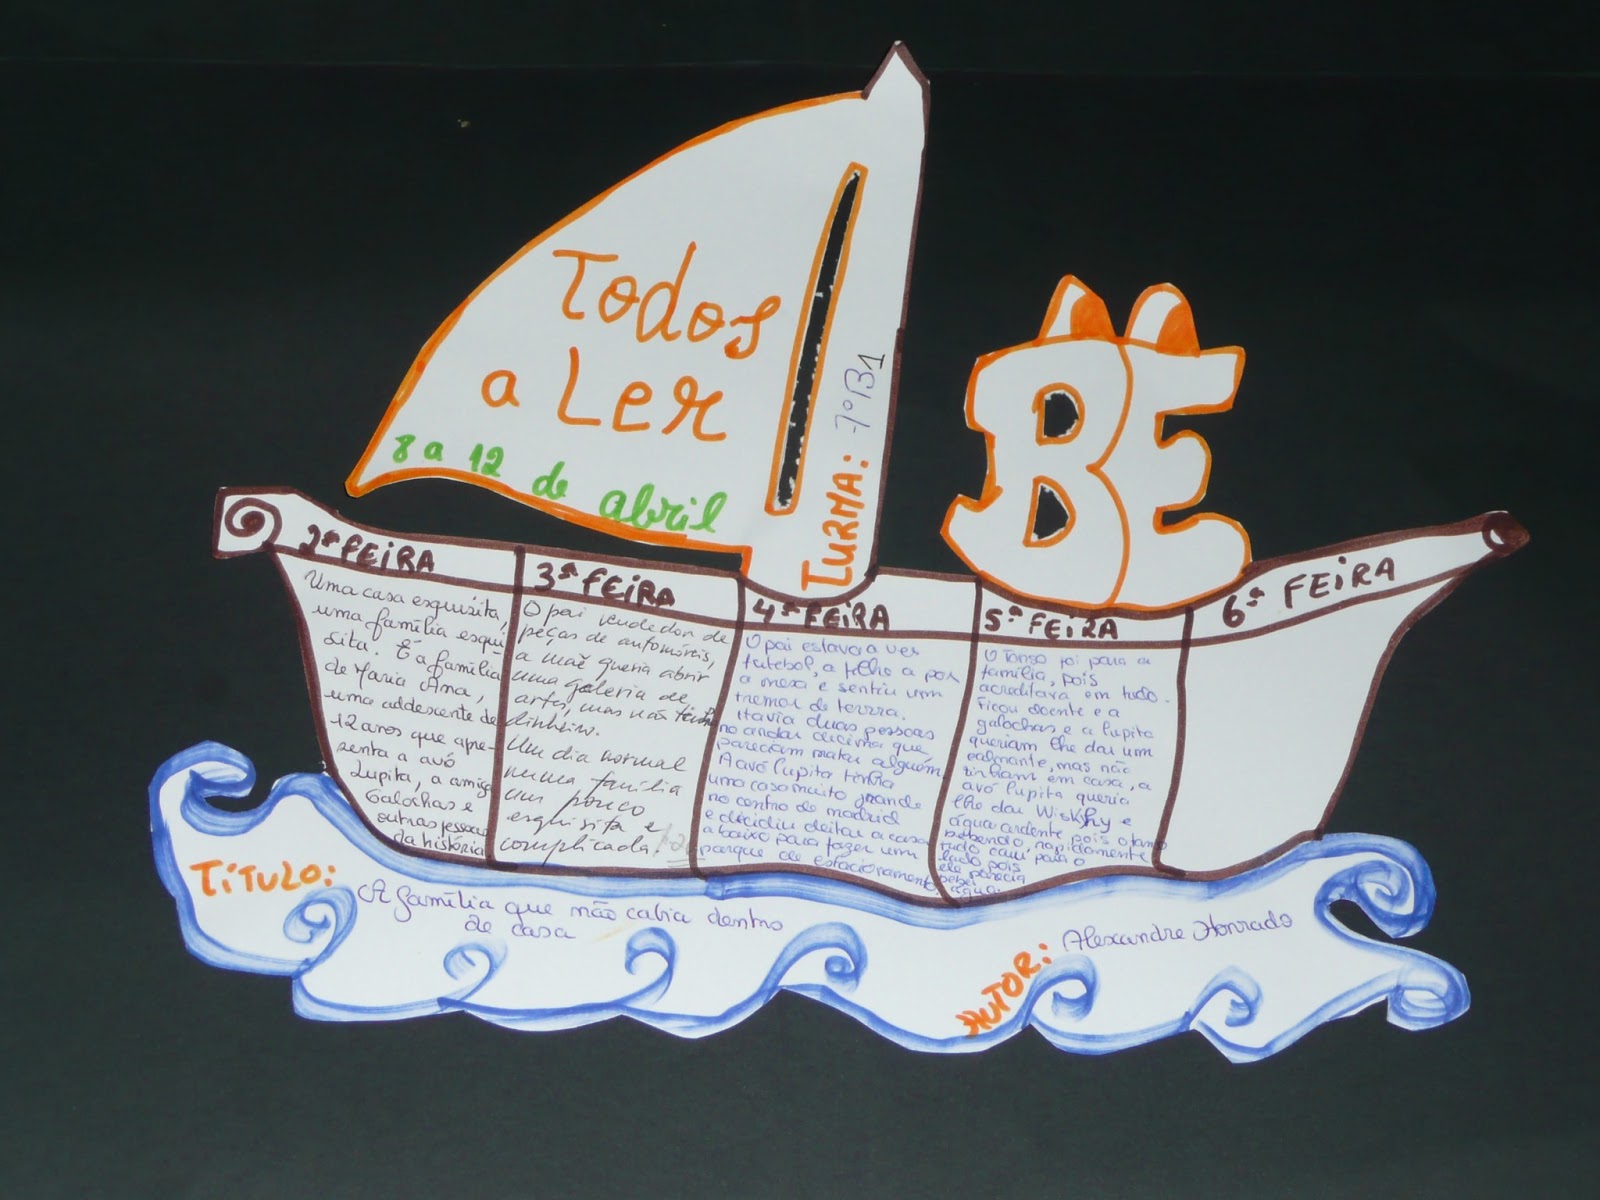 Todos
a Ler
8 a 12 de abril
TURMA: 7ºB1
BE
2ª FEIRA
Uma casa esquisita,
uma família esqui-
sita. É a família
de Maria Ana,
uma adolescente de
12 anos que apre-
senta a avó
Lupita, a amiga
Galochas e
outras pessoas
da história
3ª FEIRA
O pai vendedor de
peças de automóveis,
a mãe queria abrir
uma galeria de
artes, mas não tinha
dinheiro.
Um dia normal
numa família
um pouco
esquisita e
complicada
4ª FEIRA
O pai estava a ver
futebol, a filha a por
a mesa e sentiu um
tremor de terra.
Havia duas pessoas
no andar decima que
pareciam matar alguém.
A avó Lupita tinha
uma casa muito grande
no centro de madrid
e decidiu deitar a casa
a baixo para fazer um
parque de estacionamento.
5ª FEIRA
O Tonso foi para a
família, pois
acreditava em tudo.
Ficou doente e a
galochas e a Lupita
queriam lhe dar um
calmante, mas não
tinham em casa, a
avó Lupita queria
lhe dar Wiskhy e
água ardente pois o
bebendo rapidamente
tudo caiu para o
lado pois
ele parecia
beber
água.
6ª FEIRA
TÍTULO: A família que não cabia dentro
de casa
AUTOR: Alexandre Honrado